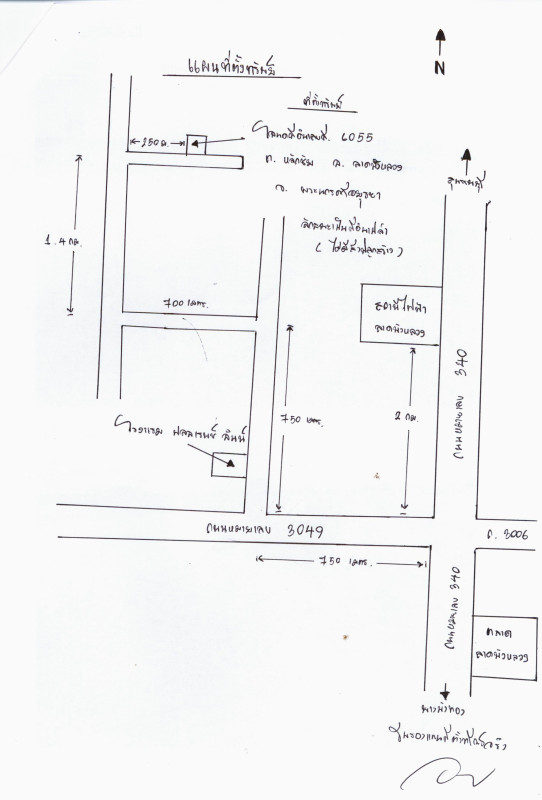 แผนที่ตั้งทรัพย์
N
ที่ตั้งทรัพย์
250 ม.
โฉนดที่ดินเลขที่ 6055
ต. หลักชัย อ. ลาดบัวหลวง
จ. พระนครศรีอยุธยา
ลักษณะเป็นที่ดินเปล่า
(ไม่มีสิ่งปลูกสร้าง)
สุพรรณบุรี
1.4 กม.
700 เมตร.
สถานีไฟฟ้า
ลาดบัวหลวง
ถนนหมายเลข 340
750 เมตร.
2 กม.
โรงแรม
ถนนหมายเลข 3049
ถ. 3006
750 เมตร.
ถนนหมายเลข 340
ตลาด
ลาดบัวหลวง
บางบัวทอง